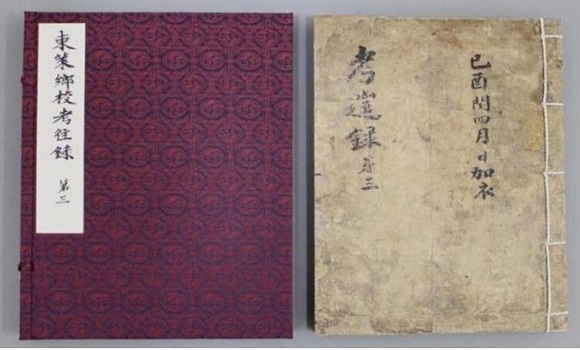 東萊鄉校考往錄 第三
己酉閏四月日加衣
考往錄 第三